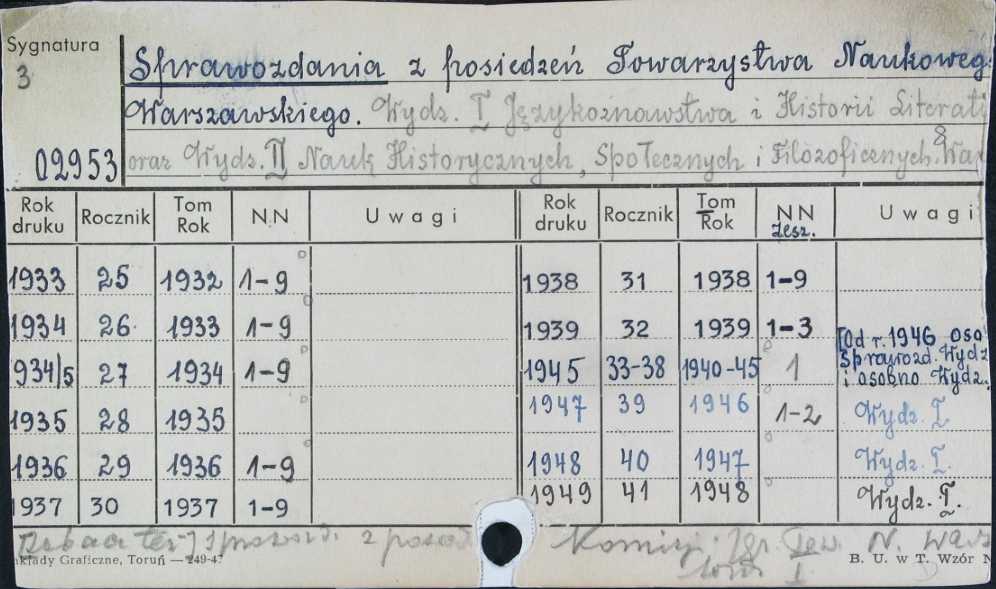 Sygnatura
3
02953
Sprawozdania z posiedzeń Towarzystwa Naukoweg
Warszawskiego. Wydz. I Językoznawstwa i Historii Literat
oraz Wydz. II Nauk Historycznych, Społecznych i Filozoficznych. 8 War
Rok druku Rocznik Tom Rok N.N Uwagi Rok druku Rocznik Tom Rok NN zesz. Uwagi
1933 25 1932 1-9 1938 31 1938 1-9
1934 26 1933 1-9 1939 32 1939 1-3
934/5 27 1934 1-9 1945 33-38 1940-45 1 [Od r. 1946 oso
Sprawozd. Wydz
i osobno Wydz.
1935 28 1935 1947 39 1946 1-2 Wydz. I
1936 29 1936 1-9 1948 40 1947 Wydz. I.
1937 30 1937 1-9 1949 41 1948 Wydz. I.
z Komisji
akłady Graficzne, Toruń — 249-47 B. U. w T. Wzór N